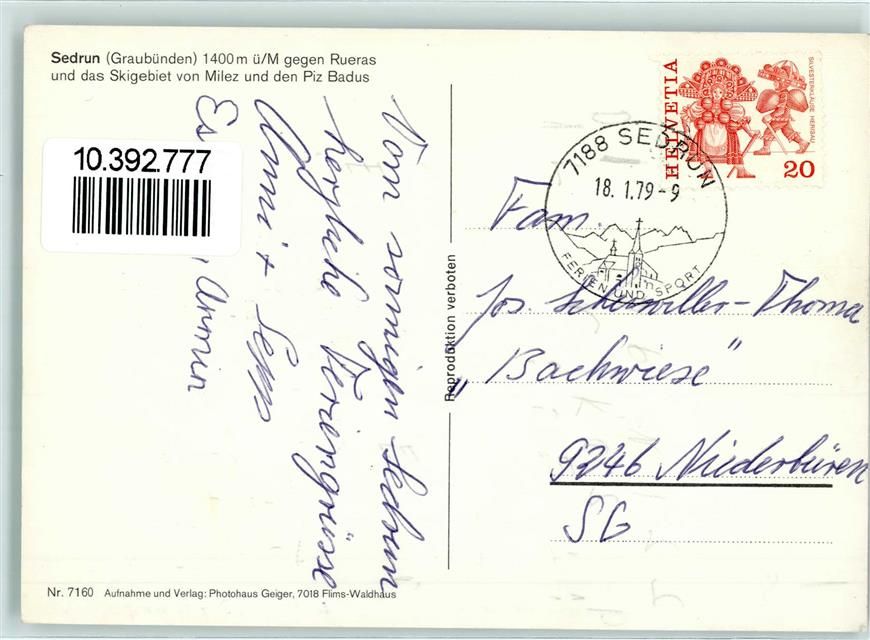 Sedrun (Graubünden) 1400 m ü/M gegen Rueras
und das Skigebiet von Milez und den Piz Badus
10.392.777
Vom sonnigen Sedrun
herzliche Feriengrüsse
Anni + Sepp
Armin
Reproduktion verboten
HELVETIA
SILVESTERKLÄUSE HERISAU
20
7188 SEDRUN
18.1.79-9
FERIEN UND SPORT
Fam.
Jos. -Thoma
"Bachwiese"
9246 Niederbüren
SG
Nr. 7160 Aufnahme und Verlag: Photohaus Geiger, 7018 Flims-Waldhaus